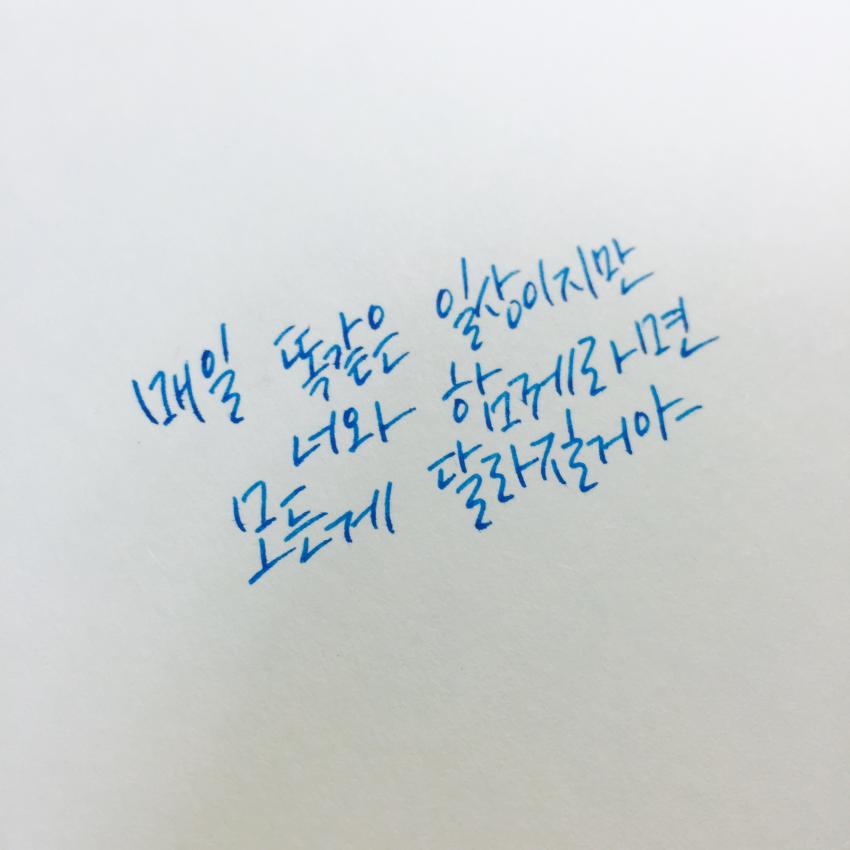 매일 똑같은 일상이지만
너와 함께라면
모든게 달라질거야